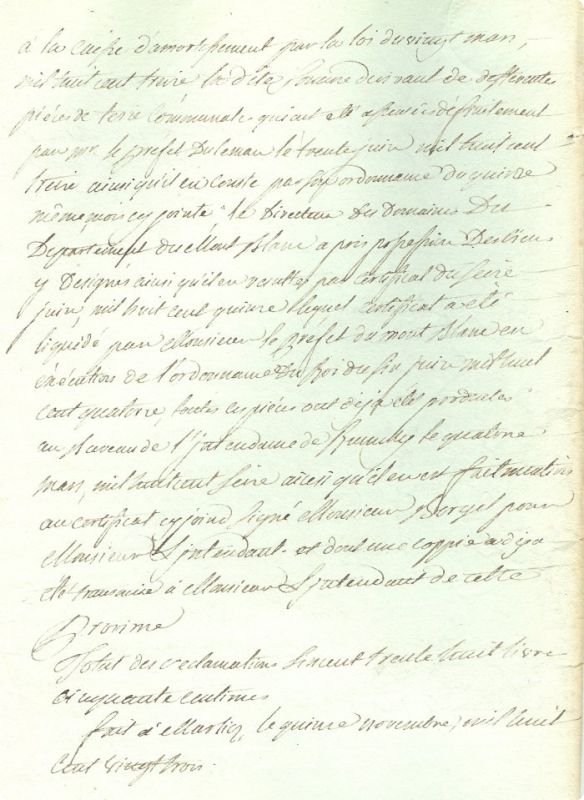 à la caisse d'amortissement par la loi du vingt mars,
mil huit cent treize la dite somme derivant de differente
pièces de terre Communale qui ont été affermés
par mr le prefet Du leman le trente juin mil huit cent
treize ainsi qu'il en Conste par son ordonnance du quinze
même mois cy jointe le Directeur Des Domaines Du
Departement du Mont Blanc a pris possession Des biens
y Designés ainsi qu'il en resulte par Certificat du seize
juin, mil huit cent quinze lequel Certificat a été
liquidé par Monsieur le prefet du mont Blanc en
éxécution de l'ordonnance Du Roi du six juin mil huit
cent quatorze, toutes ces pièces ont déjà été produites
au Bureau de l'jntendance de Rumilly le quatorze
mars, mil huit cent seize ainsi qu'il en est fait mention
au certificat cy joint signé Monsieur pour
Monsieur L'jntendant et dont une coppie a déja
été transmise à Monsieur L'jntendant de cette
Province
Total des reclamations Six cent trente huit livre
cinquante centimes
fait à Marlioz, le quinze novembre, mil huit
Cent vingt trois.